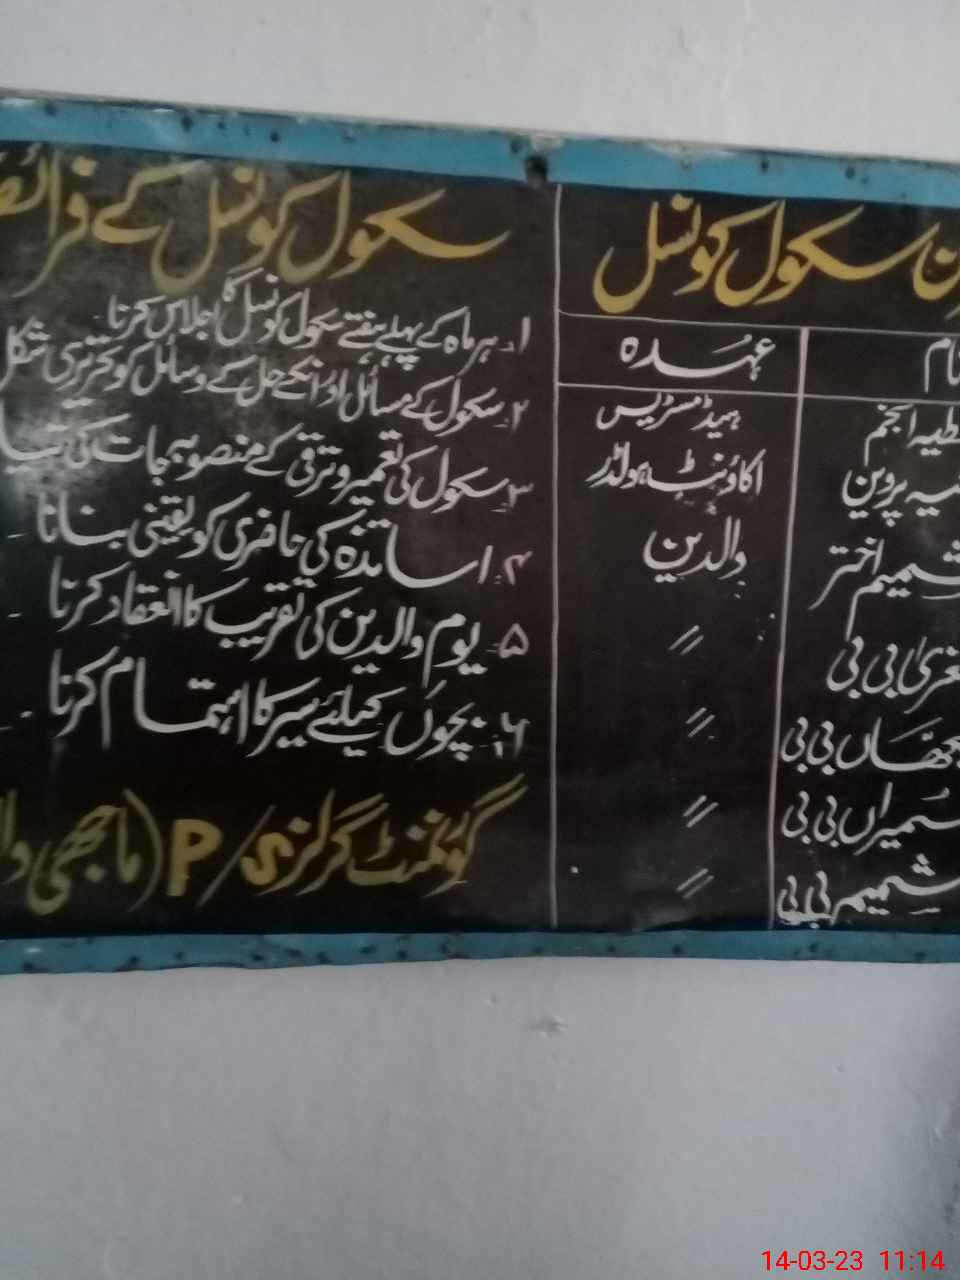 سکول کونسل
نام عہدہ
انجم ہیڈمسٹریس
پروین اکاؤنٹ ہولڈر
شمیم اختر والدین
بی بی 〃
بی بی 〃
سمیراں بی بی 〃
شمیم بی بی 〃
سکول کونسل کے فرائض
۱۔ ہر ماہ کے پہلے ہفتے سکول کونسل کا اجلاس کرنا۔
۲۔ سکول کے مسائل اور انکے حل کے وسائل کو تحریری شکل
۳۔ سکول کی تعمیر و ترقی کے منصوبہ جات کی
۴۔ اساتذہ کی حاضری کو یقینی بنانا۔
۵۔ یوم والدین کی تقریب کا انعقاد کرنا۔
۶۔ بچوں کیلئے سیر کا اہتمام کرنا۔
گورنمنٹ گرلز P/S (ماجھی
14-03-23 11:14